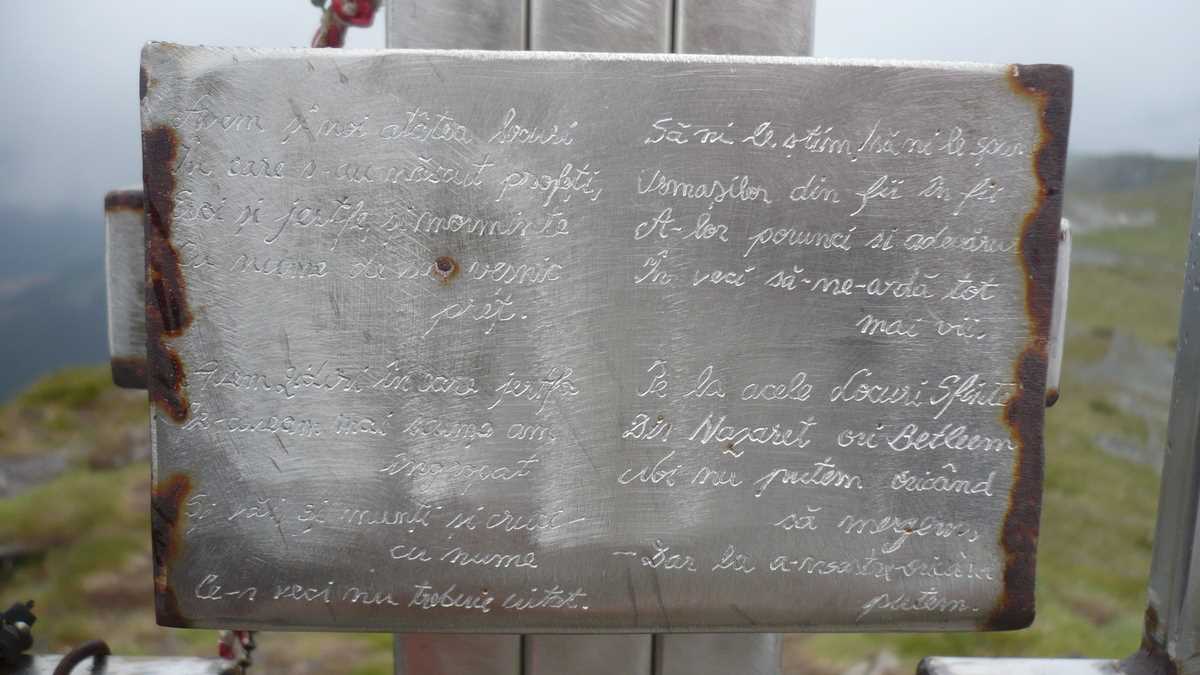 Avem și noi atâtea locuri
În care s-au născut profeți,
Eroi și jertfe și morminte
Cu nume de un veșnic
preț.
Avem zidiri în care jertfe
Ce-aveam mai scump am
îngropat
Și văi și munți și cruci -
cu nume
Ce-n veci nu trebuie uitat.
Să ni le știm, să ni le spun
Urmașilor din fii în fii
A-lor porunci si adevăru
În veci să-ne-ardă tot
mai vii,
Pe la acele Locuri Sfinte
Din Nazaret ori Betleem
Noi nu putem oricând
să mergem,
- Dar la a-noastre-oricând
putem.